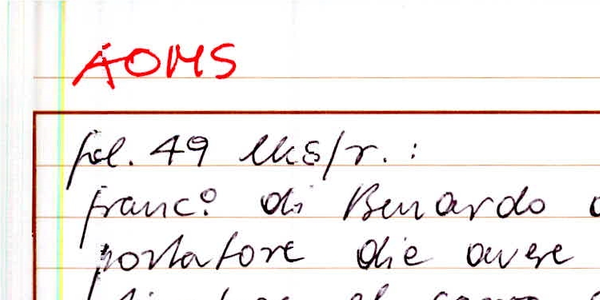 AOMS
fol. 49 lks/r.:
franc.o di Benardo
portatore die avere